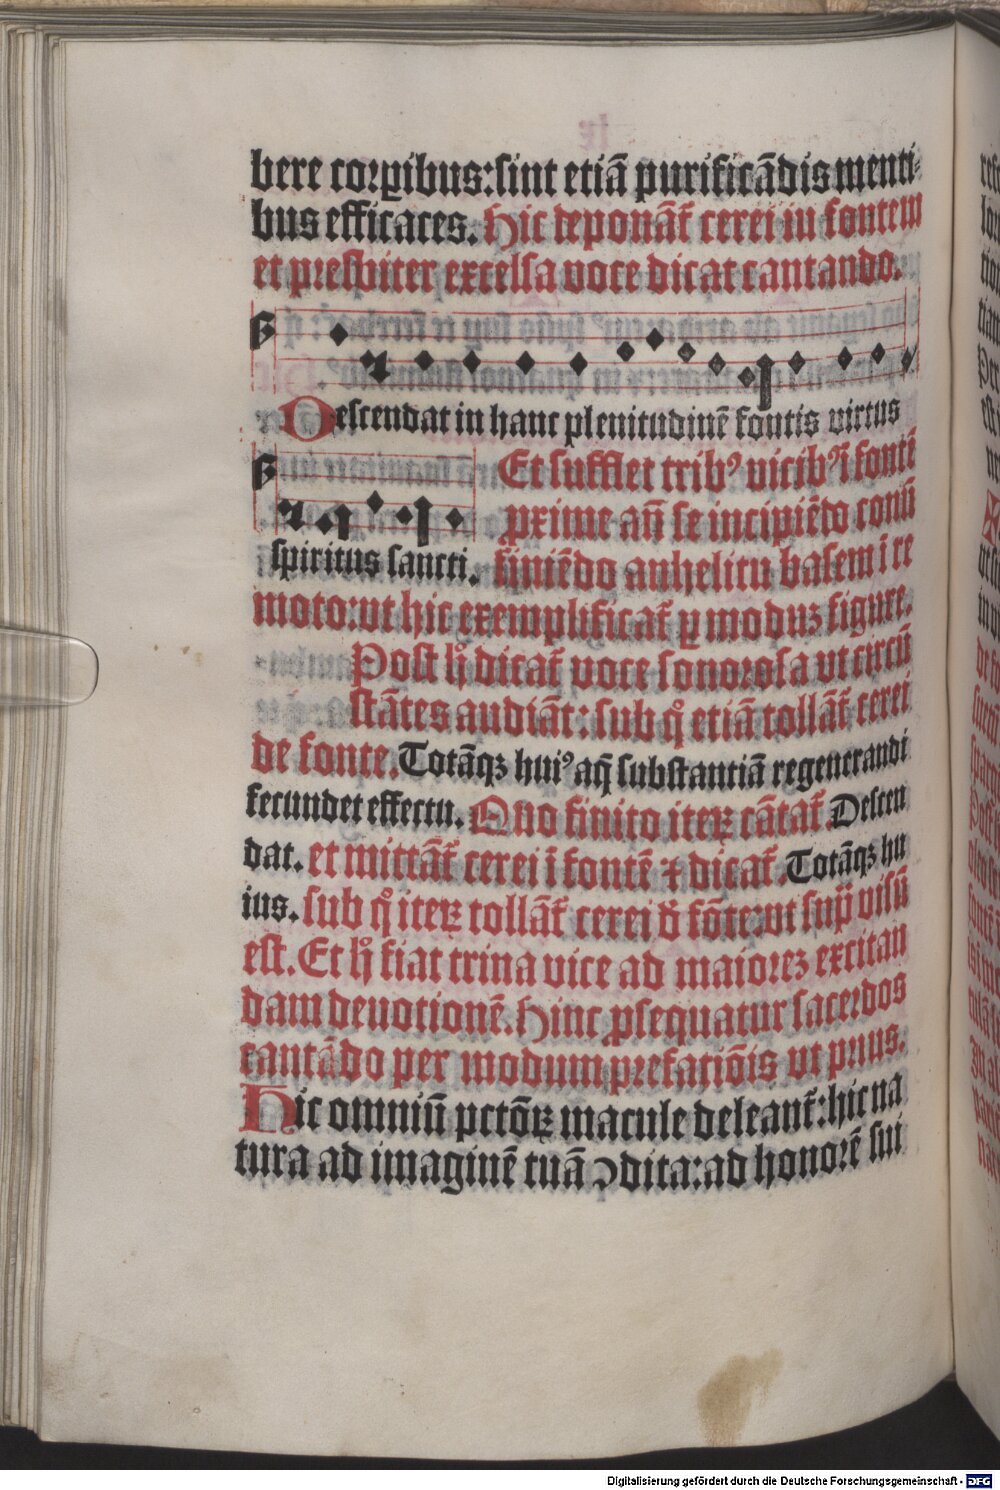 bere corꝑibus: sint etiā purificādis menti⸗
bus efficaces. Hic deponāt᷑ cerei in fontem
et presbiter excelsa voce dicat cantando.
Descendat in hanc plenitudinē fontis virtus
Et sufflet trib᷒ vicib᷒ ī fontē
ꝓxime añ se incipiēdo conū
spiritus sancti. finiēdo anhelitu basem ī re
moto: vt hic exemplificat᷑ ꝑ moduꝫ figure.
Post hͦ dicat᷑ voce sonorosa vt circū
stātes audiāt: sub qͦ etiā tollāt᷑ cerei
de fonte. Totāqꝫ hui᷒ aq̄ substantiā regenerandi
fecundet effectu. Quo finito iteꝝ cātat᷑ Descen
dat. et mittāt᷑ cerei ī fontē ⁊ dicat᷑. Totāqꝫ hu
ius. sub qͦ iteꝝ tollāt᷑ cerei d̄ fōte: vt sup̄ visū
est. Et hͦ fiat trina vice ad maioreꝫ excitan
dam deuotionē. Hinc ꝓsequatur sacerdos
cantādo per modum prefatiōis vt prius.
Hic omniū pctōꝝ macule deleant᷑: hic na
tura ad imaginē tuā ꝯdita: ad honorē sui
Digitalisierung gefördert durch die Deutsche Forschungsgemeinschaft - DFG